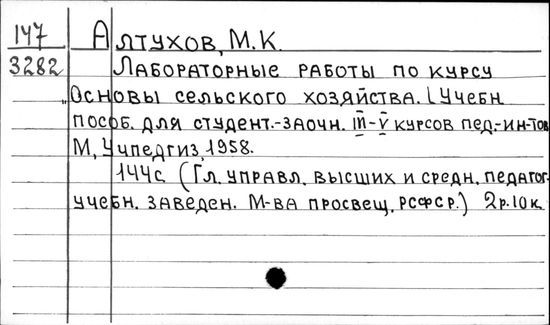 147
3282
Алтухов, М.К.
Лабораторные работы по курсу
„Основы сельского хозяйства. [Учебн.
пособ. для студент.-заочн. III-V курсов пед.-ин-тов
М, Учпедгиз, 1958.
144с. (Гл. управл. высших и средн. педагог.
учебн. заведен. М-ва просвещ. РСФСР.) 2р.10к.